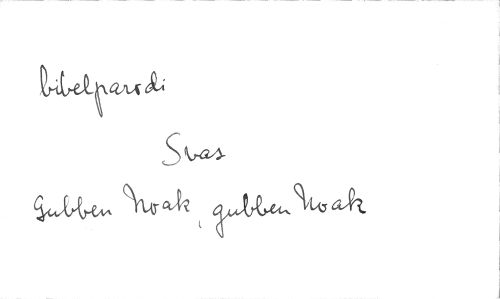 bibelparodi
Svas
Gubben Noak, gubben Noak